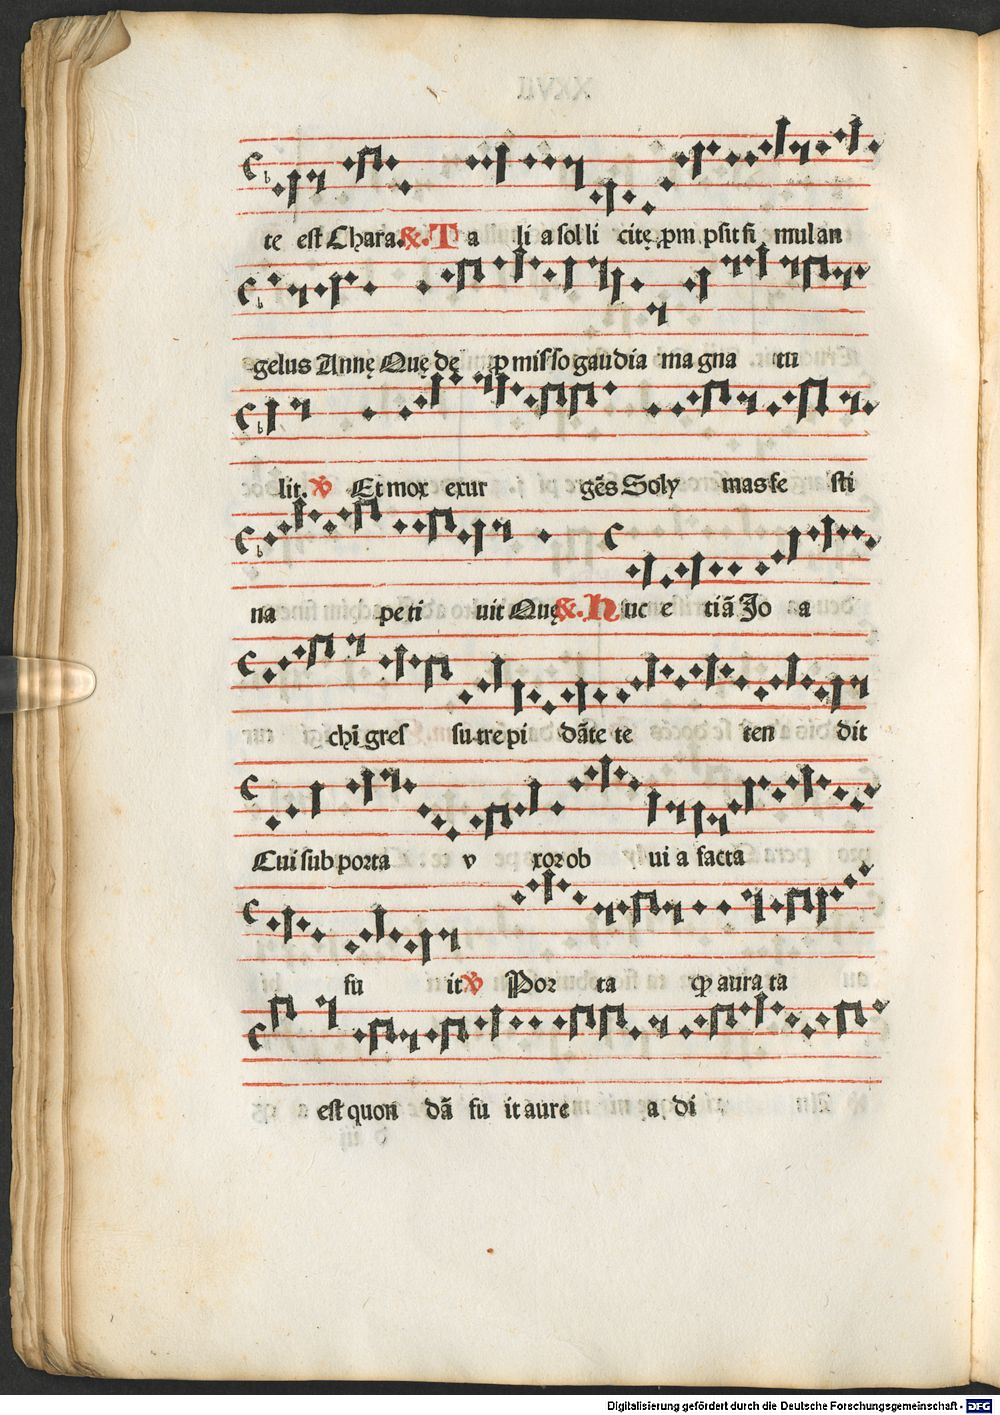 te est Chara. &. T a li a sol li citę ꝓm p̱sit si mul an
gelus Annę Quę dę ꝓ misso gaudia ma gna tu
lit. ꝟ Et mox exur gēs Soly mas fe sti
na pe ti uit Quę &. H uc e tiā Jo a
chī gres su tre pi dāte te ten dit
Cui sub porta v xor ob ui a facta
fu it ꝟ Por ta aura ta
est quon dā fu it aure a di
Digitalisierung gefördert durch die Deutsche Forschungsgemeinschaft - DFG